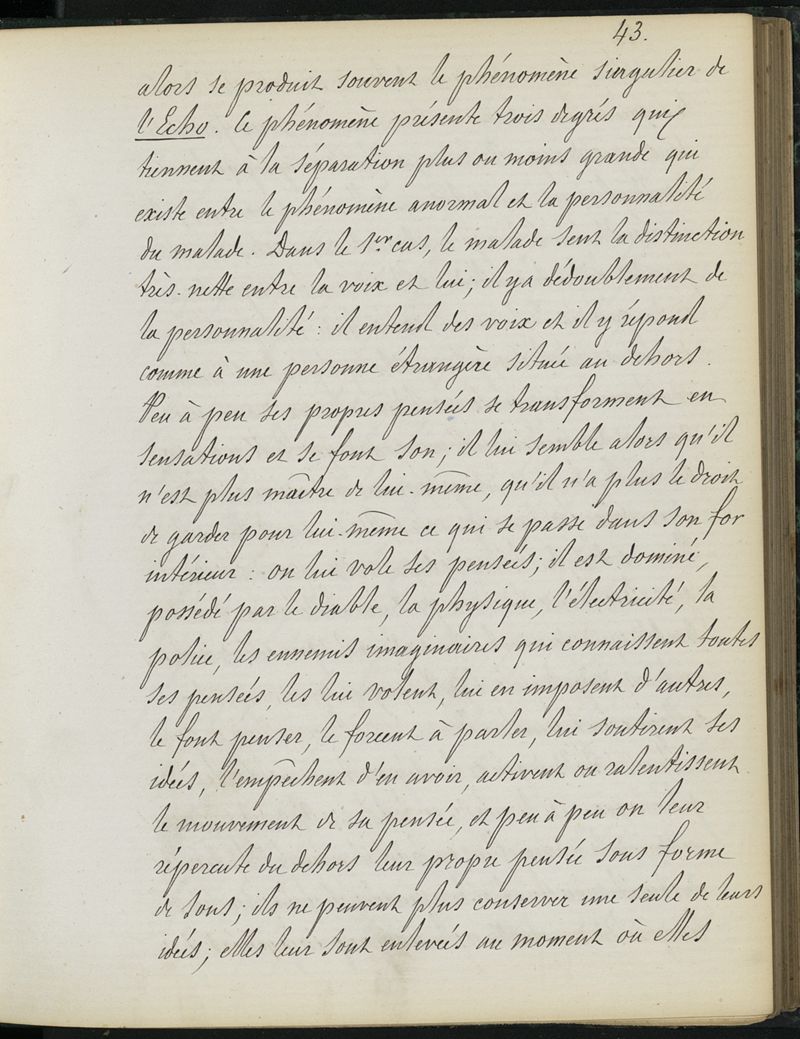 43.
alors se produit souvent le phénomène singulier de
l'Echo. Ce phénomène présente trois degrés qui
tiennent à la séparation plus ou moins grande qui
existe entre le phénomène anormal et la personnalité
du malade. Dans le 1er cas, le malade sent la distinction
très-nette entre la voix et lui; il y a dédoublement de
la personnalité : il entend des voix et il y répond
comme à une personne étrangère située au dehors.
Peu à peu ses propres pensées se transforment en
sensations et se font son; il lui semble alors qu'il
n'est plus maître de lui-même, qu'il n'a plus le droit
de garder pour lui-même ce qui se passe dans son for
intérieur : on lui vole ses pensées; il est dominé,
possédé par le diable, la physique, l'électricité, la
police, les ennemis imaginaires qui connaissent toutes
ses pensées, les lui volent, lui en imposent d'autres,
le font penser, le forcent à parler, lui soutirent ses
idées, l'empêchent d'en avoir, activent ou ralentissent
le mouvement de sa pensée, et peu à peu on leur
répercute du dehors leur propre pensée sous forme
de sons; ils ne peuvent plus conserver une seule de leurs
idées; elles leur sont enlevées au moment où elles